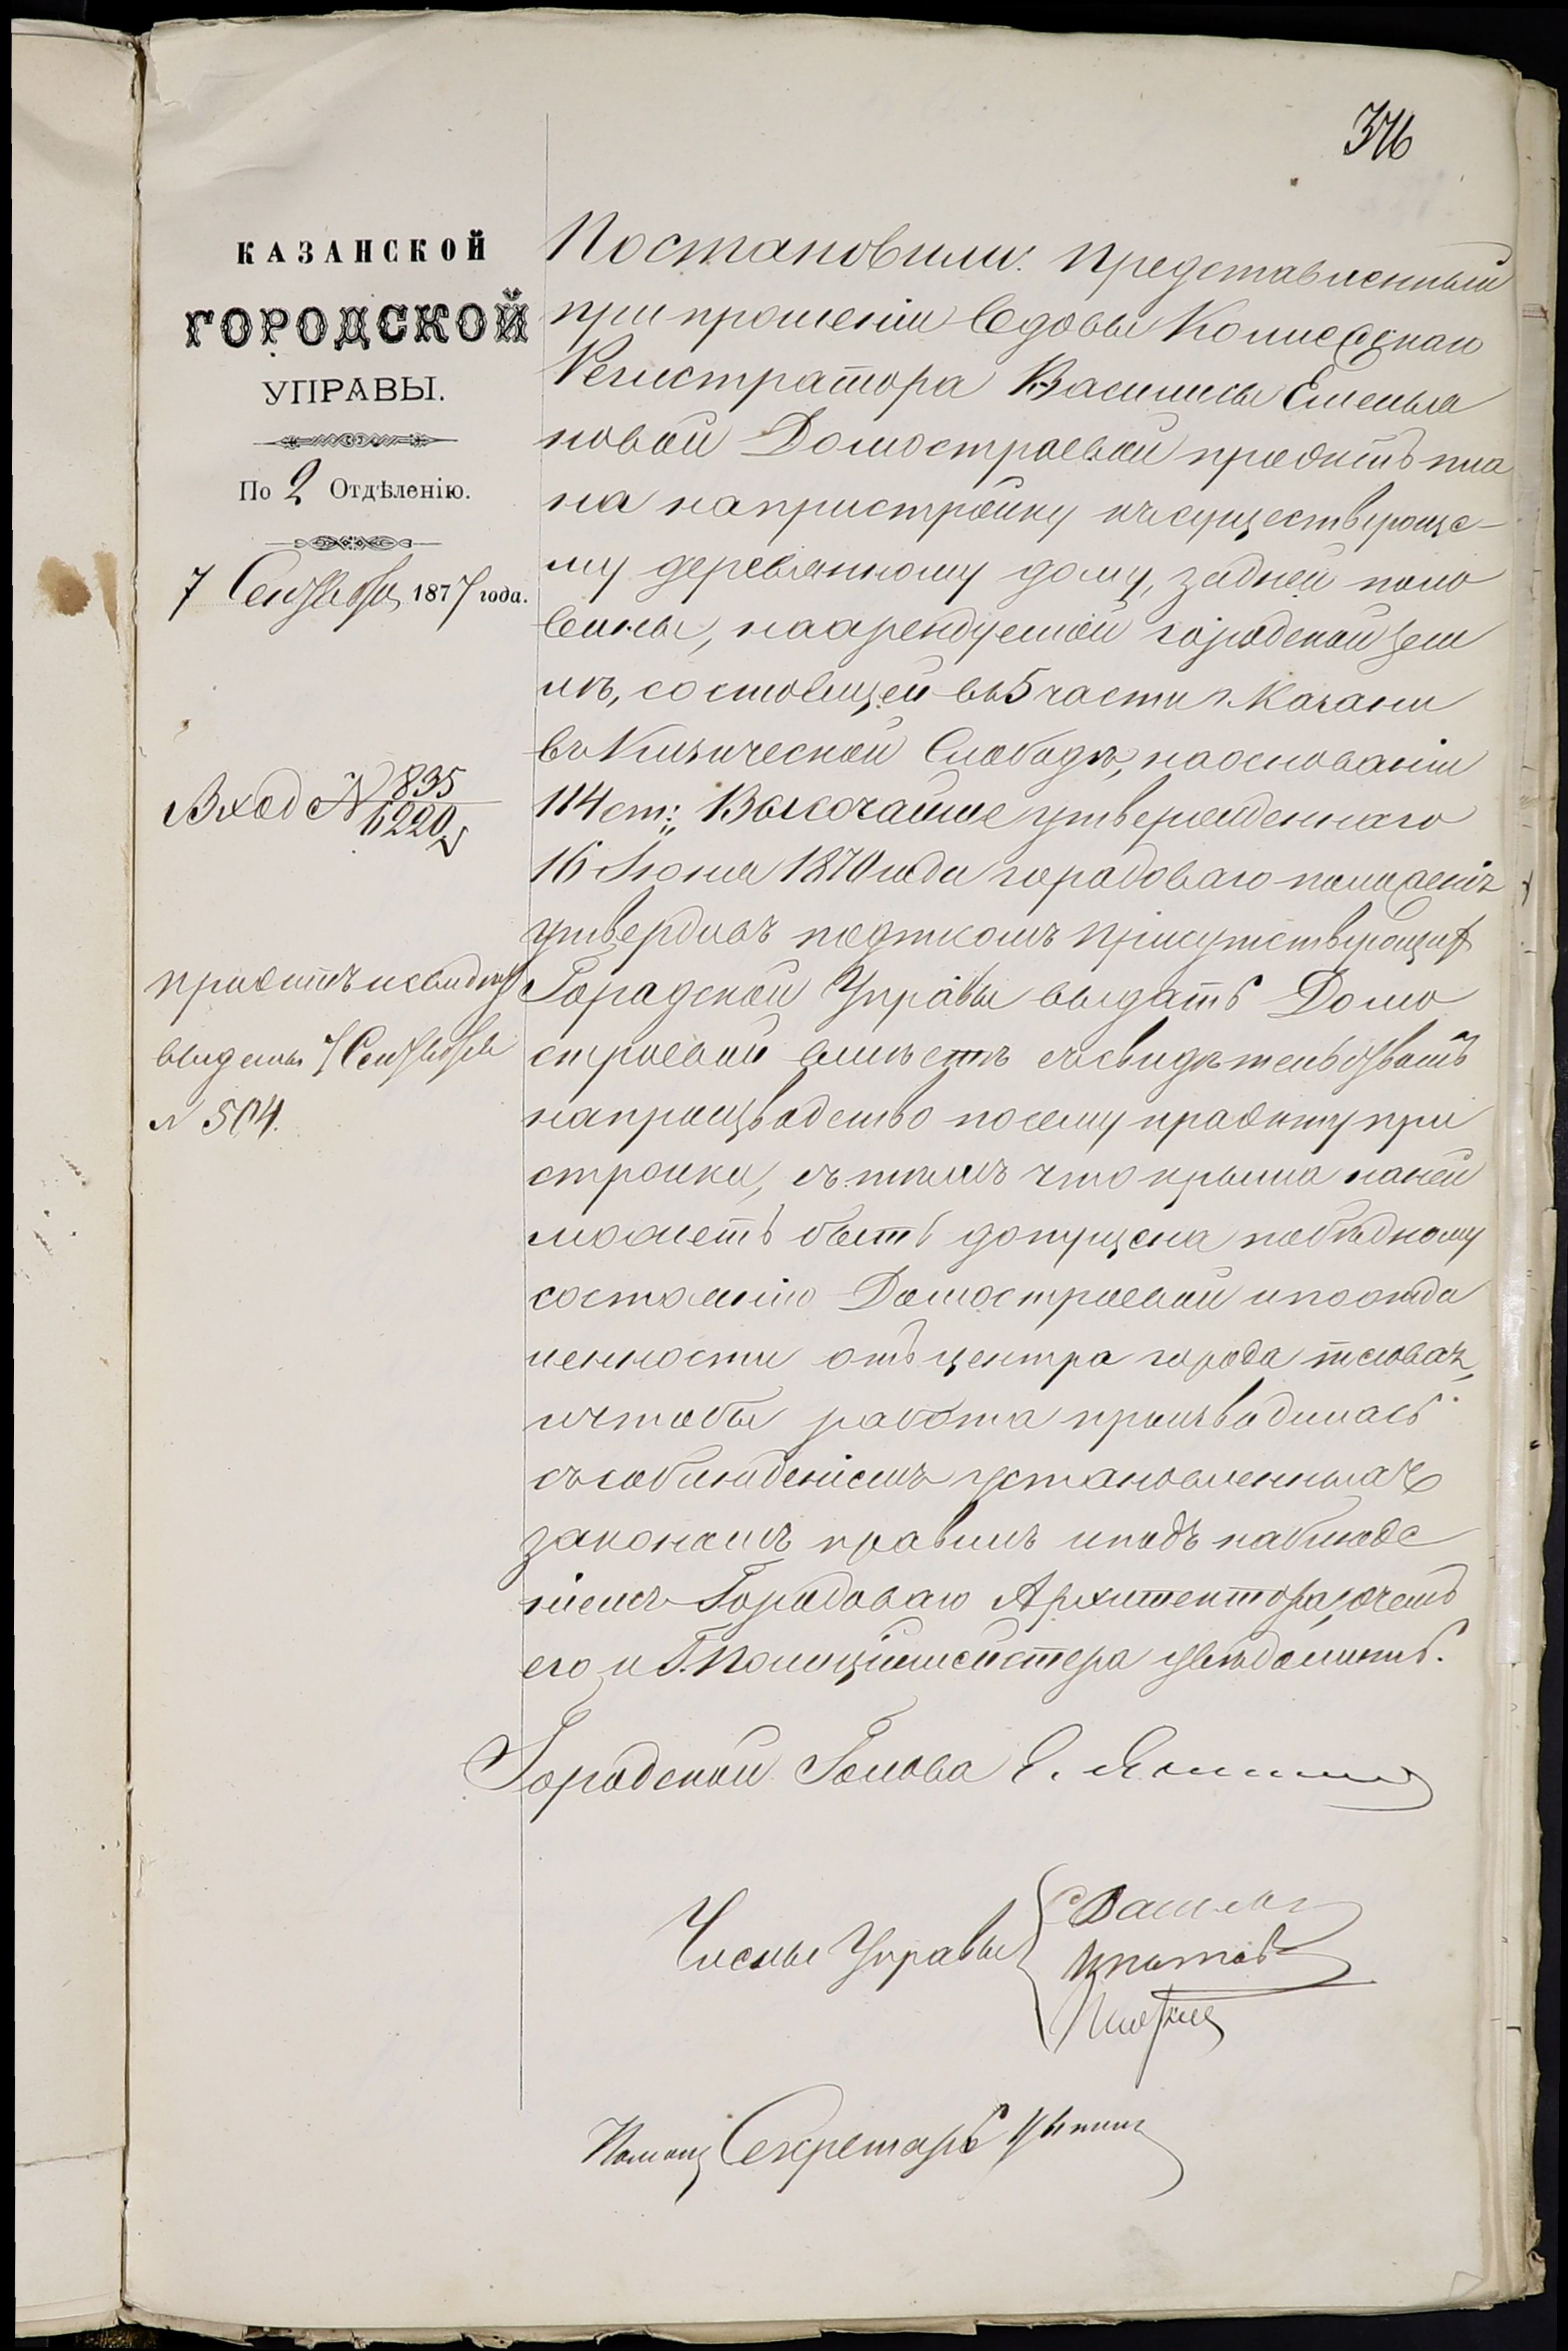 376
КАЗАНСКОЙ
ГОРОДСКОЙ
УПРАВЫ.
По 2 Отдѣленію.
7 Сентября 1877 года.
Вход № 835
6220
проэктъ и свид
выданы 7 Сентября
№ 504.
Постановили: представленный
при прошеніи вдовы Коллежскаго
Регистратора Василисы Емелья
новой Домостроевой проэктъ пла
на на пристройку къ существующе-
му деревянному дому, задней поло
вины, на арендуемой городской зем
лѣ, состоящей въ 5 части г. Казани
въ Кизической Слободѣ, на основаніи
114 ст: Высочайше утвержденнаго
16 Іюня 1870 года городоваго положенія
утвердивъ подписомъ присутствующих
Городской Управы выдать Домо
строевой вмѣстѣ съ свидѣтельствомъ
на производство по сему проэкту при
стройки, съ тѣмъ что крыша на ней
можетъ быть допущена по бѣдному
состоянію Домостроевой и по отда
ленности отъ центра города тесовая,
и чтобы работа производилась
съ соблюденіемъ установленныхъ
закономъ правилъ и подъ наблюде
ніемъ Городоваго Архитектора, о чемъ
его и Г. Полиціймейстера увѣдомить.
Городской Голова Е.
Члены Управы
Помощ Секретарь